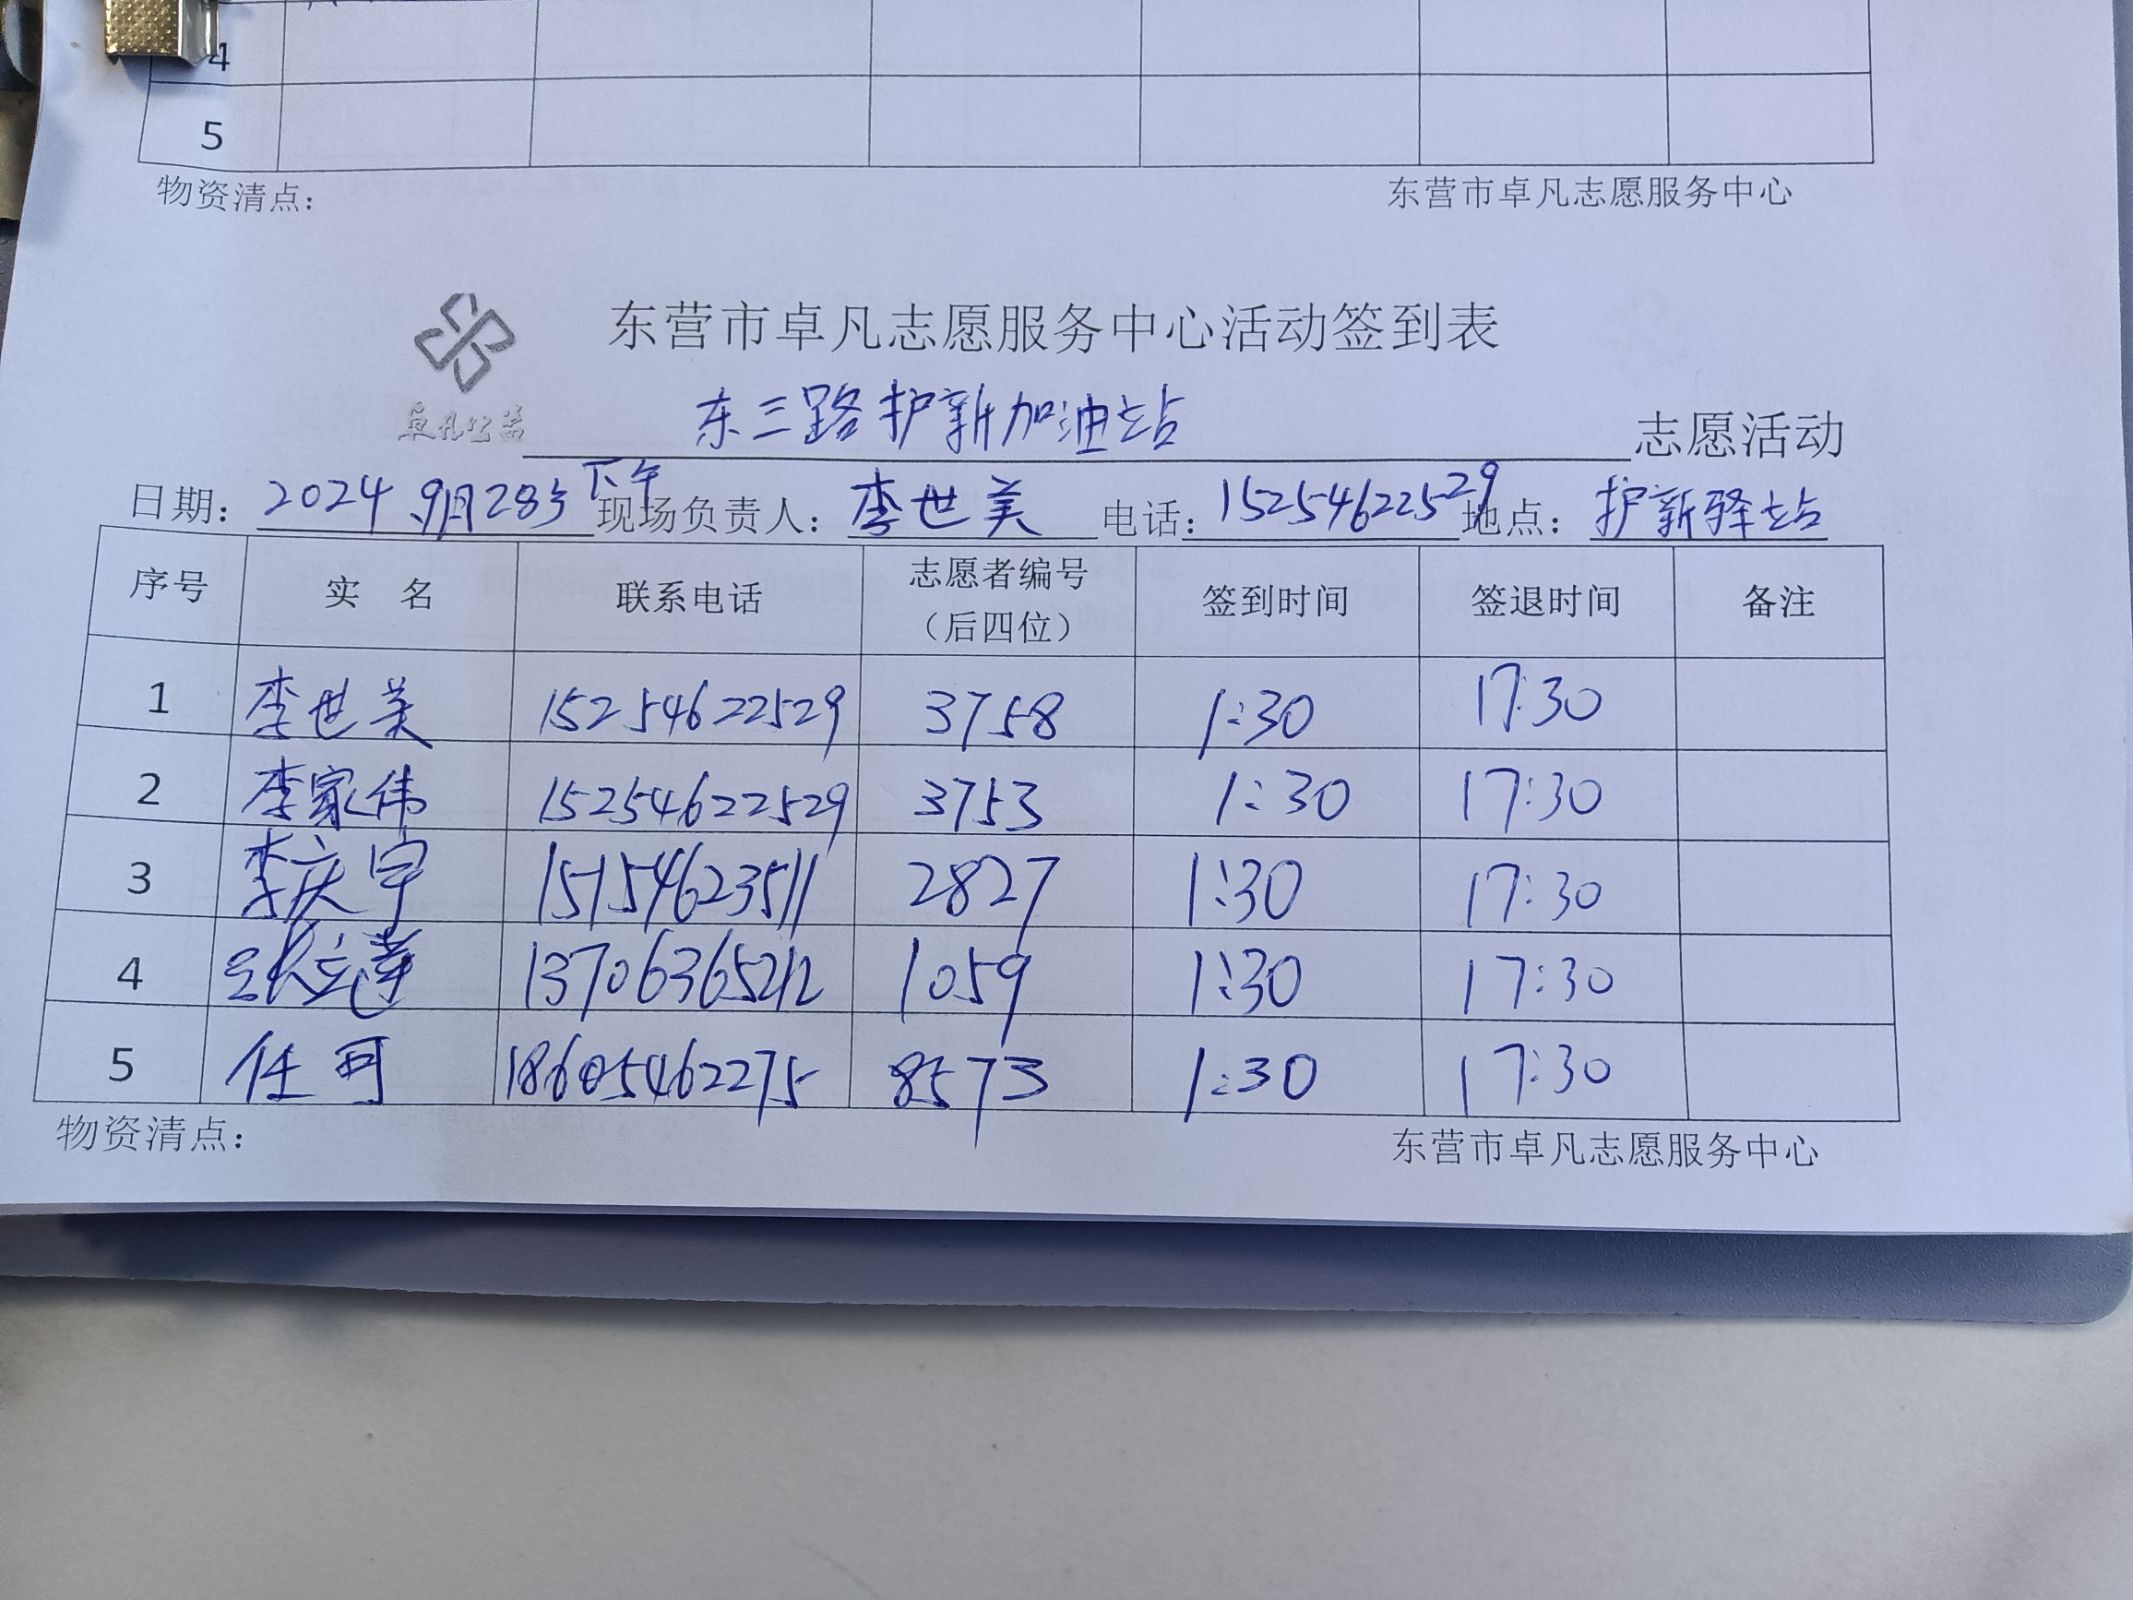 4
5
物资清点： 东营市卓凡志愿服务中心
东营市卓凡志愿服务中心活动签到表
卓凡公益 东三路护新加油站 志愿活动
日期：2024.9月28号下午 现场负责人：李世美 电话：15254622529 地点：护新驿站
序号 实 名 联系电话 志愿者编号（后四位） 签到时间 签退时间 备注
1 李世美 15254622529 3758 1:30 17:30
2 李家伟 15254622529 3753 1:30 17:30
3 李庆宇 15154623511 2827 1:30 17:30
4 张立莲 13706365212 1059 1:30 17:30
5 任可 18605462275 8573 1:30 17:30
物资清点： 东营市卓凡志愿服务中心